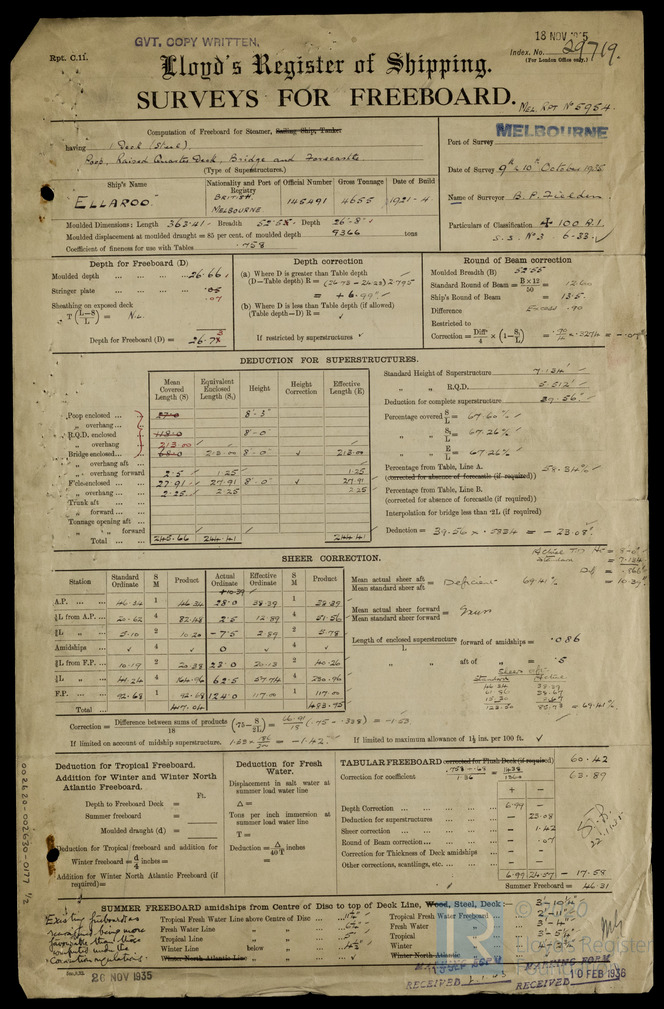 GVT. COPY WRITTEN.
18 NOV 1935
Rpt. C.11.
Index. No. 29719.
(For London Office only.)
Lloyd's Register of Shipping.
SURVEYS FOR FREEBOARD.
MEL. RPT No 5954.
Computation of Freeboard for Steamer, Sailing Ship, Tanker
having 1 Deck (Steel)
Poop, Raised Quarter Deck, Bridge and Forecastle
(Type of Superstructures.)
Port of Survey MELBOURNE
Date of Survey 9th & 10th October 1935
Name of Surveyor B. P. Fielden
Particulars of Classification + 100 A.1.
S.S. No 3 6-33
Ship's Name
Nationality and Port of Registry
Official Number
Gross Tonnage
Date of Build
ELLAROO
BRITISH
MELBOURNE
145491
4655
1921-4
Moulded Dimensions: Length 363.41 Breadth 52.55 Depth 26-8
Moulded displacement at moulded draught = 85 per cent. of moulded depth 9366 tons
Coefficient of fineness for use with Tables .758
Depth for Freeboard (D)
Moulded depth 26.66
Stringer plate .05
.07
Sheathing on exposed deck
T (L-S/L) = NIL
Depth for Freeboard (D) = 26.73
Depth correction
(a) Where D is greater than Table depth
(D-Table depth) R = (26.73 - 24.23) 2.795
= + 6.99"
(b) Where D is less than Table depth (if allowed)
(Table depth-D) R =
If restricted by superstructures
Round of Beam correction
Moulded Breadth (B) 52.55
Standard Round of Beam = B×12/50 = 12.60
Ship's Round of Beam = 13.5
Difference Excess .90
Restricted to
Correction = Diff/4 × (1 - S1/L)
DEDUCTION FOR SUPERSTRUCTURES.
Mean Covered Length (S)
Equivalent Enclosed Length (S1)
Height
Height Correction
Effective Length (E)
Poop enclosed 8'-3"
„ overhang
R.Q.D. enclosed 8'-0"
„ overhang 213.00
Bridge enclosed 213.00 8'-0" 213.00
„ overhang aft
„ overhang forward 2.5 1.25 1.25
F'cle enclosed 27.91 27.91 8'-0" 27.91
„ overhang 2.25 2.25 2.25
Trunk aft
„ forward
Tonnage opening aft
„ „ forward
Total 245.66 244.41 244.41
Standard Height of Superstructure 7.134"
„ „ R.Q.D. 5.512"
Deduction for complete superstructure 39.56"
Percentage covered S/L = 67.60%
„ „ S1/L = 67.26%
„ „ E/L = 67.26%
Percentage from Table, Line A. 58.34%
(corrected for absence of forecastle (if required))
Percentage from Table, Line B.
(corrected for absence of forecastle (if required))
Interpolation for bridge less than ·2L (if required)
Deduction = 39.56 × .5834 = - 23.08"
SHEER CORRECTION.
Station
Standard Ordinate
S M
Product
Actual Ordinate
Effective Ordinate
S M
Product
+10.39
A.P. 46.34 1 46.34 28.0 38.39 1 38.39
⅙L from A.P. 20.62 4 82.48 2.5 12.89 4 51.56
⅓L „ 5.10 2 10.20 -7.5 2.89 2 5.78
Amidships 4 0 4
⅓L from F.P. 10.19 2 20.38 23.0 20.13 2 40.26
⅙L „ 41.24 4 164.96 62.5 57.74 4 230.96
F.P. 92.68 1 92.68 124.0 117.00 1 117.00
Total 417.04 483.75
Mean actual sheer aft / Mean standard sheer aft = Deficient 69.41%
Mean actual sheer forward / Mean standard sheer forward = Excess
Length of enclosed superstructure / L forward of amidships = .086
„ „ aft of „ = .5
Sheer aft.
Standard Actual
Correction = Difference between sums of products / 18 (·75 - S/2L) = 66.91/18 (.75 - .338) = -1.53
If limited on account of midship superstructure.
= -1.42
If limited to maximum allowance of 1½ ins. per 100 ft.
Deduction for Tropical Freeboard.
Addition for Winter and Winter North Atlantic Freeboard.
Ft.
Depth to Freeboard Deck =
Summer freeboard =
Moulded draught (d) =
Deduction for Tropical freeboard and addition for Winter freeboard = d/4 inches =
Addition for Winter North Atlantic Freeboard (if required) =
Deduction for Fresh Water.
Displacement in salt water at summer load water line
Δ =
Tons per inch immersion at summer load water line
T =
Deduction = Δ/40T inches
=
TABULAR FREEBOARD corrected for Flush Deck (if required) 60.42
Correction for coefficient .758+.68/1.36 = 1438/1360 63.89
+ -
Depth Correction 6.99
Deduction for superstructures 23.08
Sheer correction 1.42
Round of Beam correction .07
Correction for Thickness of Deck amidships
Other corrections, scantlings, etc.
6.99 24.57 - 17.58
Summer Freeboard = 46.31
SUMMER FREEBOARD amidships from Centre of Disc to top of Deck Line, Wood, Steel, Deck :— 3'-10¼"
Tropical Fresh Water Line above Centre of Disc
Fresh Water Line „ „
Tropical Line „ „
Winter Line below „
Winter North Atlantic Line
Tropical Fresh Water Freeboard 2'-11"
Fresh Water „ 3'-4"
Tropical „ 3'-5¾"
Winter
Winter North Atlantic
Existing freeboards reassigned being more favourable than those computed under the Convention regulations.
26 NOV 1935
RECEIVED
MARKING FORM
RECEIVED 10 FEB 1936
002620-002630-0177 1/2
© 2020
LR
Lloyd's Register